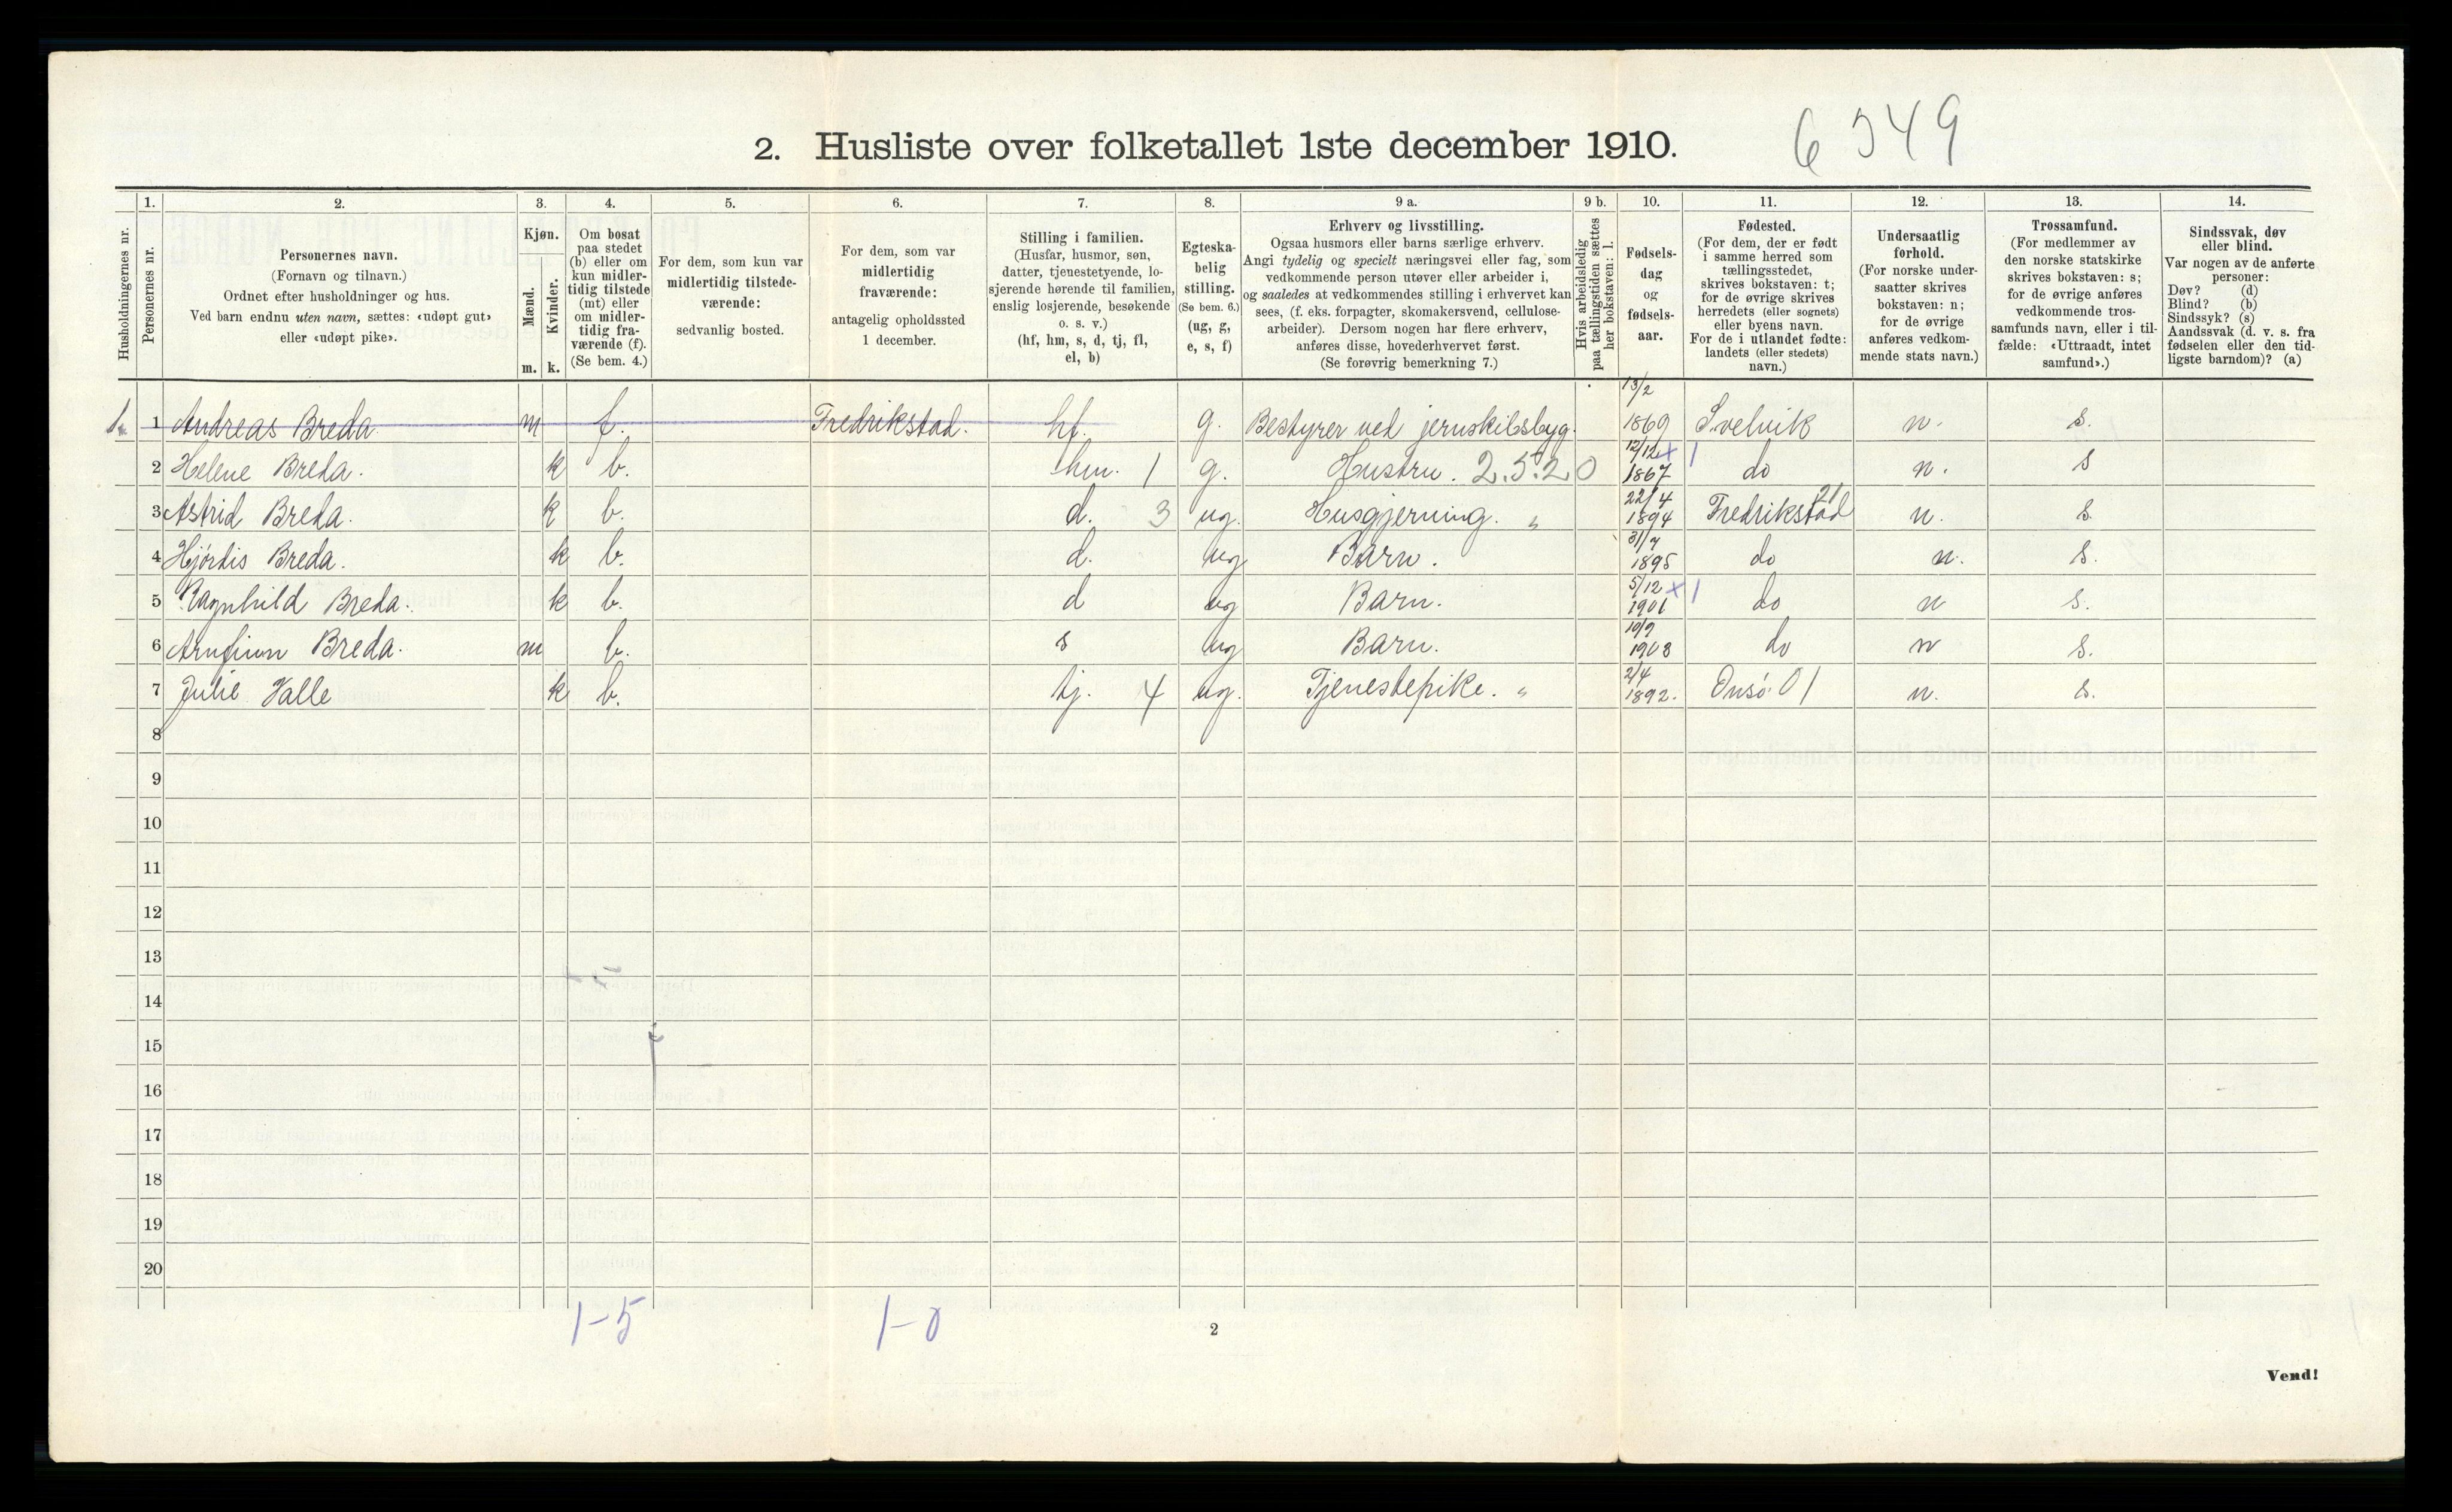 6549
2. Husliste over folketallet 1ste december 1910.
1. 2. 3. 4. 5. 6. 7. 8. 9 a. 9 b. 10. 11. 12. 13. 14.
Husholdningernes nr.
Personernes nr.
Personernes navn.
(Fornavn og tilnavn.)
Ordnet efter husholdninger og hus.
Ved barn endnu uten navn, sættes: «udøpt gut»
eller «udøpt pike».
Kjøn.
Mænd.
Kvinder.
m. k.
Om bosat
paa stedet
(b) eller om
kun midler-
tidig tilstede
(mt) eller
om midler-
tidig fra-
værende (f).
(Se bem. 4.)
For dem, som kun var
midlertidig tilstede-
værende:
sedvanlig bosted.
For dem, som var
midlertidig
fraværende:
antagelig opholdssted
1 december.
Stilling i familien.
(Husfar, husmor, søn,
datter, tjenestetyende, lo-
sjerende hørende til familien,
enslig losjerende, besøkende
o. s. v.)
(hf, hm, s, d, tj, fl,
el, b)
Egteska-
belig
stilling.
(Se bem. 6.)
(ug, g,
e, s, f)
Erhverv og livsstilling.
Ogsaa husmors eller barns særlige erhverv.
Angi tydelig og specielt næringsvei eller fag, som
vedkommende person utøver eller arbeider i,
og saaledes at vedkommendes stilling i erhvervet kan
sees, (f. eks. forpagter, skomakersvend, cellulose-
arbeider). Dersom nogen har flere erhverv,
anføres disse, hovederhvervet først.
(Se forøvrig bemerkning 7.)
Hvis arbeidsledig
paa tællingstiden sættes
her bokstaven: l.
Fødsels-
dag
og
fødsels-
aar.
Fødested.
(For dem, der er født
i samme herred som
tællingsstedet,
skrives bokstaven: t;
for de øvrige skrives
herredets (eller sognets)
eller byens navn.
For de i utlandet fødte:
landets (eller stedets)
navn.)
Undersaatlig
forhold.
(For norske under-
saatter skrives
bokstaven: n;
for de øvrige
anføres vedkom-
mende stats navn.)
Trossamfund.
(For medlemmer av
den norske statskirke
skrives bokstaven: s;
for de øvrige anføres
vedkommende tros-
samfunds navn, eller i til-
fælde: «Uttraadt, intet
samfund».)
Sindssvak, døv
eller blind.
Var nogen av de anførte
personer:
Døv? (d)
Blind? (b)
Sindssyk? (s)
Aandssvak (d. v. s. fra
fødselen eller den tid-
ligste barndom)? (a)
1. 1 Andreas Breda. m f. Fredrikstad. hf. g. Bestyrer ved jernskibsbyg. 13/2 1869 Svelvik n. s.
2 Helene Breda. k b. hm. 1 g. Hustru. 2.5.2.0 12/12 x 1867 1 do n. s
3 Astrid Breda. k b. d. 3 ug. Husgjerning. „ 22/4 1894 Fredrikstad 21 n. s.
4 Hjördis Breda. k b. d. ug Barn. 31/7 1895 do n. s.
5 Ragnhild Breda. k b. d ug Barn. 5/12 x 1901 1 do n s.
6 Arnfinn Breda. m b. s ug Barn. 10/9 1903 do n s.
7 Julie Halle k b. tj. 4 ug. Tjenestepike. „ 2/4 1892. Onsö. 01 n. s.
8
9
10
11
12
13
14
15
16
17
18
19
20
1-5 1-0
2
Vend!